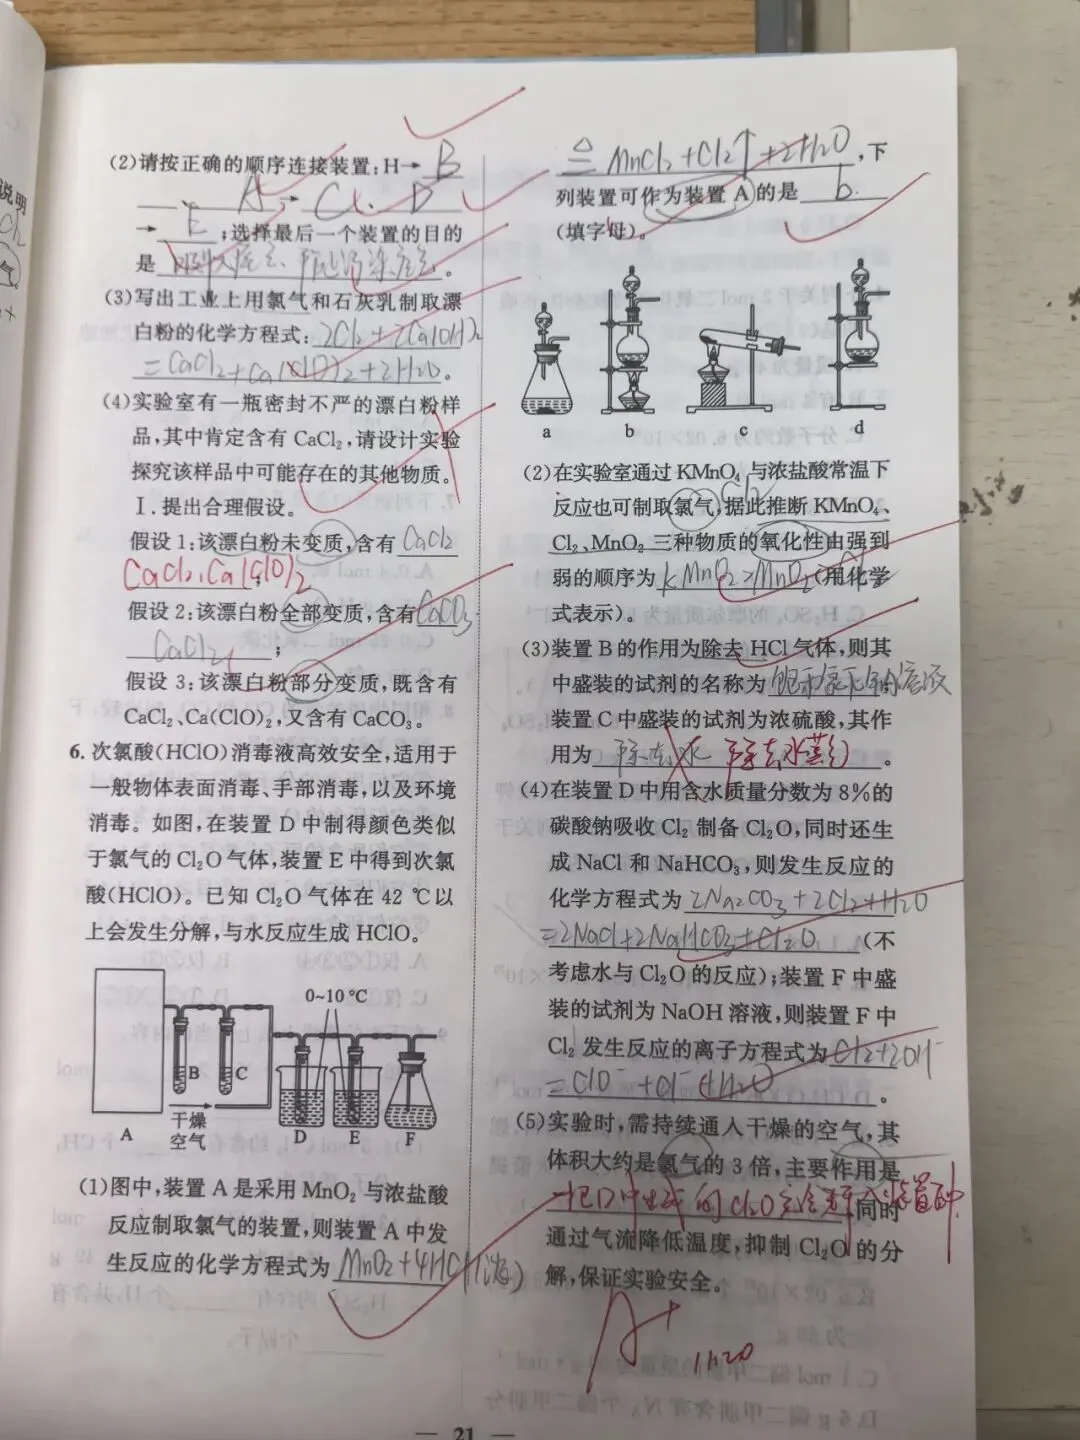 说明
气
(2)请按正确的顺序连接装置:H→ B
A → C、D
→ E ;选择最后一个装置的目的
是 吸收尾气、
(3)写出工业上用氯气和石灰乳制取漂
白粉的化学方程式: 2Cl2+2Ca(OH)2
=CaCl2+Ca(ClO)2+2H2O 。
(4)实验室有一瓶密封不严的漂白粉样
品,其中肯定含有 CaCl₂,请设计实验
探究该样品中可能存在的其他物质。
Ⅰ.提出合理假设。
假设 1:该漂白粉未变质,含有 CaCl2
CaCl2、Ca(ClO)2 ;
假设 2:该漂白粉全部变质,含有 CaCO3、
CaCl2 ;
假设 3:该漂白粉部分变质,既含有
CaCl₂、Ca(ClO)₂,又含有 CaCO₃。
6. 次氯酸(HClO)消毒液高效安全,适用于
一般物体表面消毒、手部消毒,以及环境
消毒。如图,在装置 D 中制得颜色类似
于氯气的 Cl₂O 气体,装置 E 中得到次氯
酸(HClO)。已知 Cl₂O 气体在 42 ℃以
上会发生分解,与水反应生成 HClO。
0~10 ℃
B C
干燥
空气
A D E F
(1)图中,装置 A 是采用 MnO₂ 与浓盐酸
反应制取氯气的装置,则装置 A 中发
生反应的化学方程式为 MnO2+4HCl(浓)
△
= MnCl2+Cl2↑+2H2O ,下
列装置可作为装置 A 的是 b
(填字母)。
a b c d
(2)在实验室通过 KMnO₄ 与浓盐酸常温下
Cl2
反应也可制取氯气,据此推断 KMnO₄、
Cl₂、MnO₂ 三种物质的氧化性由强到
弱的顺序为 KMnO2>MnO2 (用化学
式表示)。
(3)装置 B 的作用为除去 HCl 气体,则其
中盛装的试剂的名称为 饱和氯化钠溶液
装置 C 中盛装的试剂为浓硫酸,其作
用为 除去水 除去水蒸气 。
(4)在装置 D 中用含水质量分数为 8%的
碳酸钠吸收 Cl₂ 制备 Cl₂O,同时还生
成 NaCl 和 NaHCO₃,则发生反应的
化学方程式为 2Na2CO3+2Cl2+H2O
=2NaCl+2NaHCO3+Cl2O (不
考虑水与 Cl₂O 的反应);装置 F 中盛
装的试剂为 NaOH 溶液,则装置 F 中
Cl₂ 发生反应的离子方程式为 Cl2+2OH⁻
=ClO⁻+Cl⁻+H2O 。
(5)实验时,需持续通入干燥的空气,其
体积大约是氯气的 3 倍,主要作用是
把D中生成的Cl2O 装置E中 ,同时
通过气流降低温度,抑制 Cl₂O 的分
解,保证实验安全。
A+
11.20
— 21 —